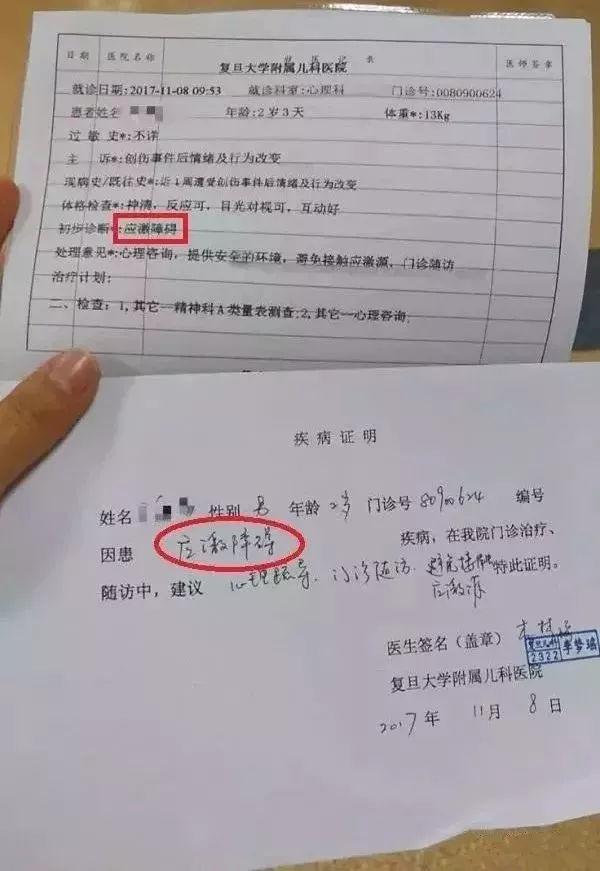 日期 医院名称 医师签章
复旦大学附属儿科医院
就诊日期:2017-11-08 09:53 就诊科室:心理科 门诊号:0080900624
患者姓名 年龄:2岁3天 体重*:13Kg
过敏史*:不详
主诉*:创伤事件后情绪及行为改变
现病史/既往史*:近1周遭受创伤事件后情绪及行为改变
体格检查*:神清，反应可，目光对视可，互动好
初步诊断*:应激障碍
处理意见*:心理咨询，提供安全的环境，避免接触应激源，门诊随访
治疗计划:
二、检查:1,其它—精神科A类量表测查;2,其它—心理咨询;
疾病证明
姓名 性别 男 年龄 2岁 门诊号 80900624 编号
因患 应激障碍 疾病，在我院门诊治疗、
随访中，建议 心理疏导、门诊随访、避免接触应激源 特此证明。
医生签名（盖章）
复旦儿科 2322 李梦瑶
复旦大学附属儿科医院
2017年 11月 8日